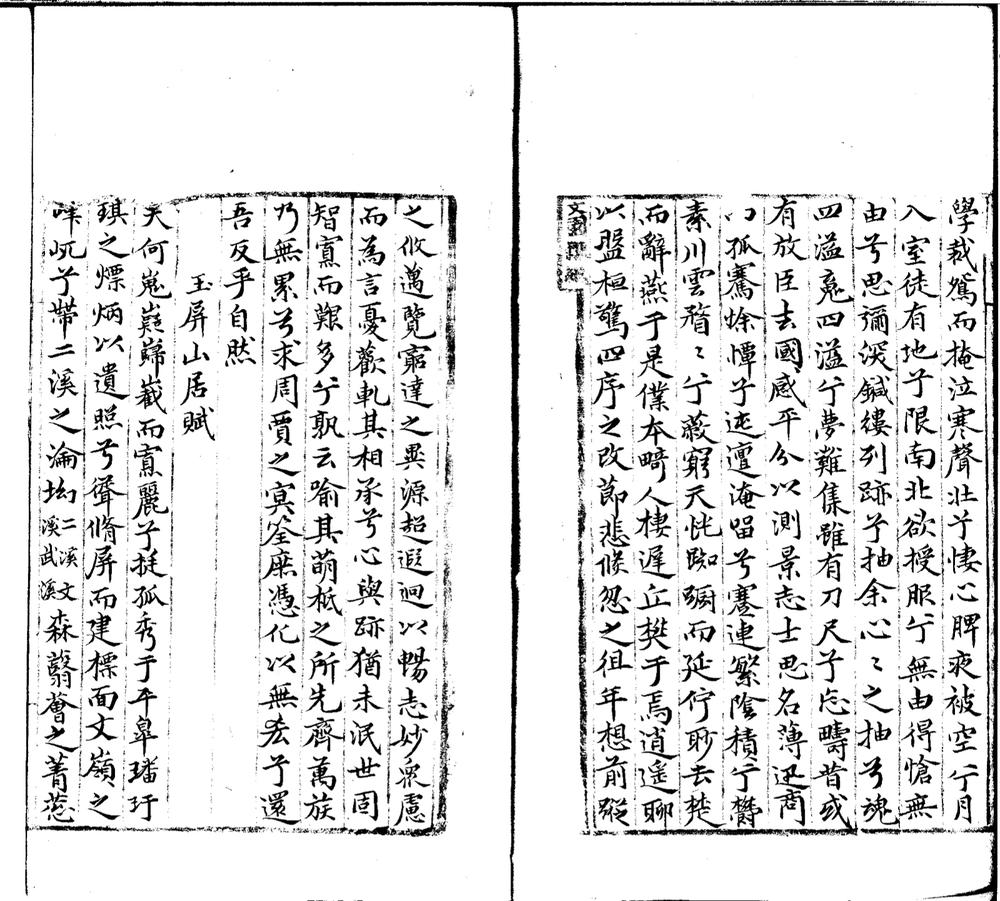 學裁鴛而掩泣寒聲壯兮悽心脾夜被空兮月
入室徒有地兮限南北欲授服兮無由得愴無
由兮思彌深鍼縷列跡兮抽余心〻之抽兮魂
四溢兔四溢兮夢難集雖有刀尺兮忘疇昔或
有放臣去國感平分以測景志士思名薄迅商
孤騫悇憛兮迍邅淹留兮蹇連繁陰積兮欝
素川雲䅈〻兮蔽窮天恍踟躕而延佇聊去楚
而辭燕于是僕本畸人棲遲丘樊于焉逍遥聊
以盤桓驚四序之改節悲倏忽之徂年想前蹤
之攸邁覽窮達之異源超遐迴以暢志妙衆慮
而為言憂歡軋其相承兮心與跡猶未泯世固
智寡而艱多兮孰云喻其萌柢之所先齊萬族
乃無累兮求周賈之冥筌庶憑化以無㤀兮還
吾反乎自然
玉屏山居賦
夫何嵬嶷巋嶻而寡麗兮挺孤秀于平皐璠玗
琪之熛炳以遺照兮聳脩屏而建標面文嶺之
岞屼兮帶二溪之淪坳二溪文溪武溪森翳薈之菁葱